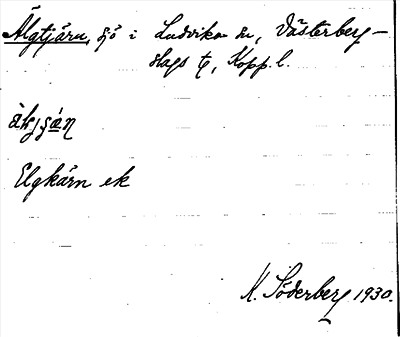 Älgtjärn, sjö i Ludvika sn, Västerberg-
slags tg, Kopp. l.
Elgkärn ek
K. Söderberg 1930.